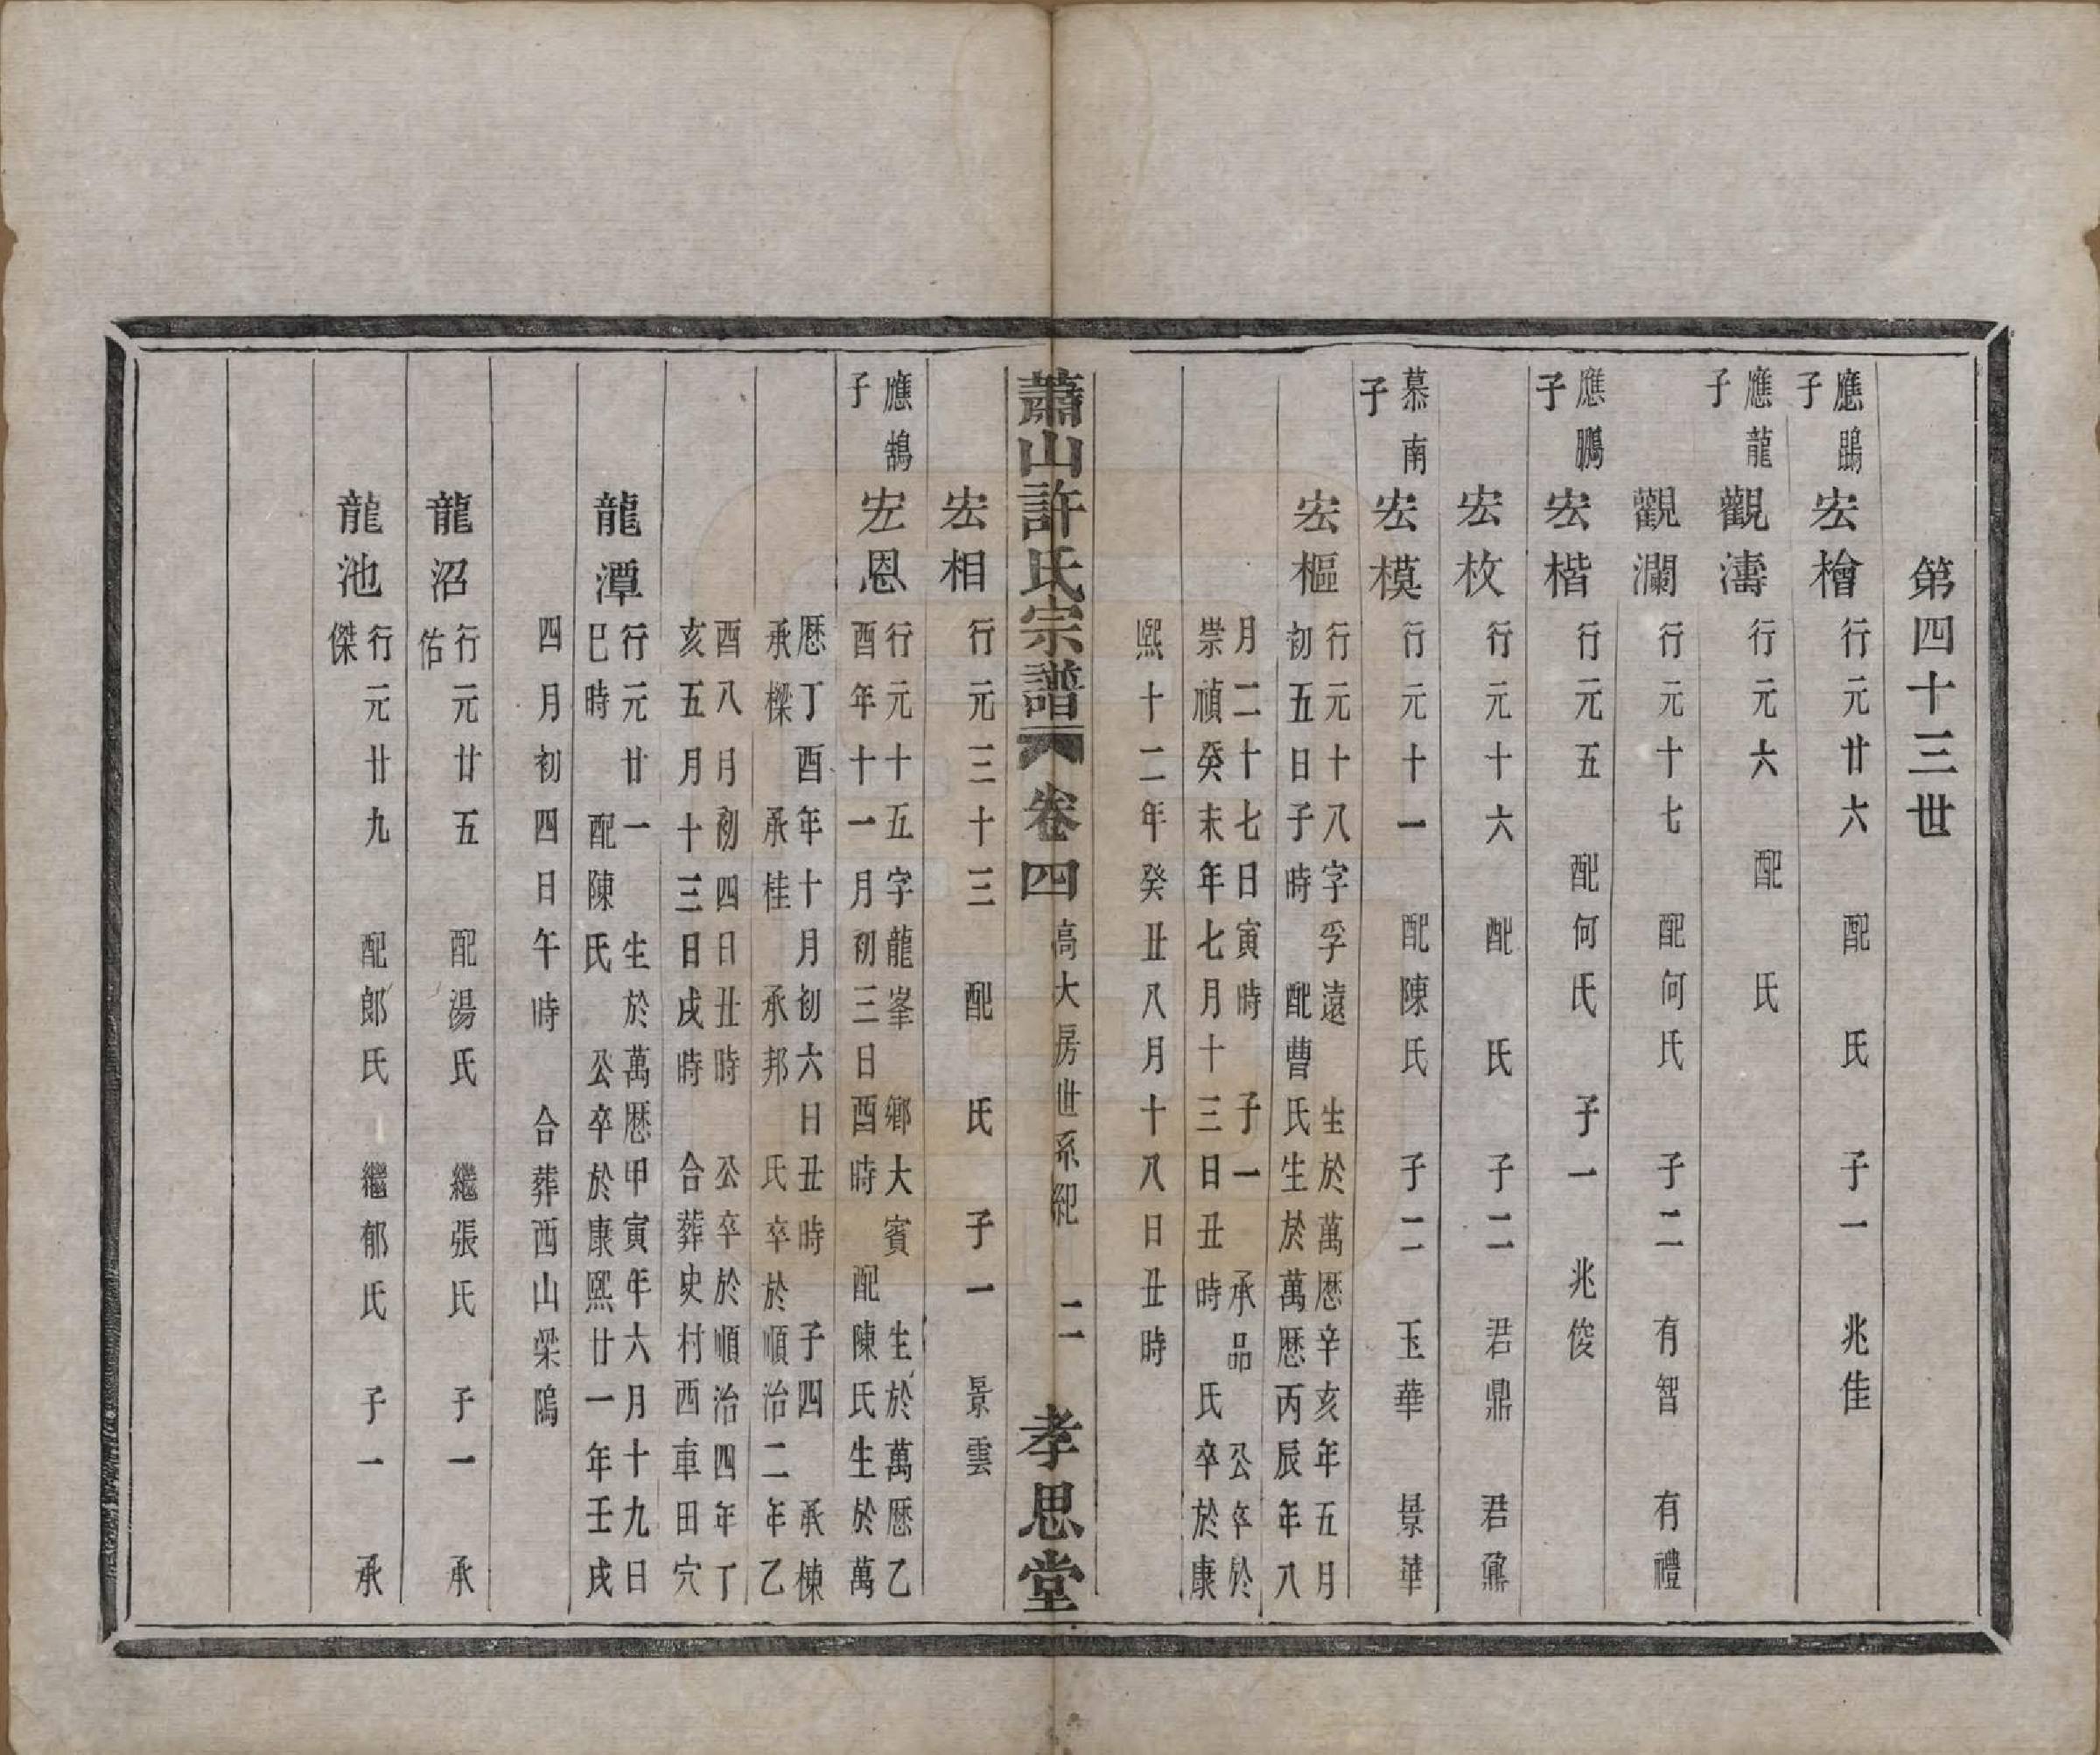 第四十三世
應鵾子
宏檜
行元廿六　配　氏　子一　兆佳
應龍子
觀濤
行元六　配　氏
觀瀾
行元十七　配何氏　子二　有智　有禮
應鵬子
宏楷
行元五　配何氏　子一　兆俊
宏枚
行元十六　配　氏　子二　君鼎　君鼐
慕南子
宏模
行元十一　配陳氏　子二　玉華　景華
宏樞
行元十八字孚遠　生於萬厯辛亥年五月
初五日子時　配曹氏生於萬厯丙辰年八
月二十七日寅時　子一　承品　公卒於
崇禎癸未年七月十三日丑時　氏卒於康
熙十二年癸丑八月十八日丑時
蕭山許氏宗譜　卷四　高大房世系紀　二　孝思堂
宏相
行元三十三　配　氏　子一　景雲
應鵠子
宏恩
行元十五字龍峯　鄉大賓　生於萬厯乙
酉年十一月初三日酉時　配陳氏生於萬
厯丁酉年十月初六日丑時　子四　承棟
承樑　承桂　承邦　氏卒於順治二年乙
酉八月初四日丑時　公卒於順治四年丁
亥五月十三日戌時　合葬史村西車田穴
龍潭
行元廿一　生於萬厯甲寅年六月十九日
巳時　配陳氏　公卒於康熙廿一年壬戌
四月初四日午時　合葬西山梁塢
龍沼
行元廿五　配湯氏　繼張氏　子一　承
佑
龍池
行元廿九　配郎氏　繼郁氏　子一　承
傑